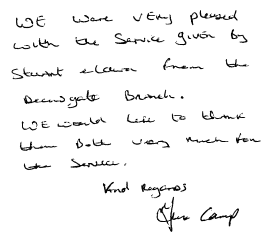 WE were very pleased
with the Service given by
Stewart from the
Branch.
WE would like to thank
them Both very much for
the Service.
Kind Regards
Camp